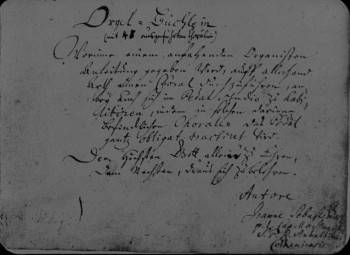 Orgel-Büchlein
(mit 48 ausgeführten Chorälen)
Worinne einem anfahenden Organisten
Anleitung gegeben wird, auff allerhand
Arth einen Choral durchzuführen, an-
bey auch sich im Pedal studio zu habi-
litiren, indem in solchen darinne
befindlichen Choralen das Pedal
gantz obligat tractiret wird.
Dem Höchsten Gott allein zu Ehren,
Dem Nechsten, draus sich zu belehren.
Autore
Joanne Sebast.